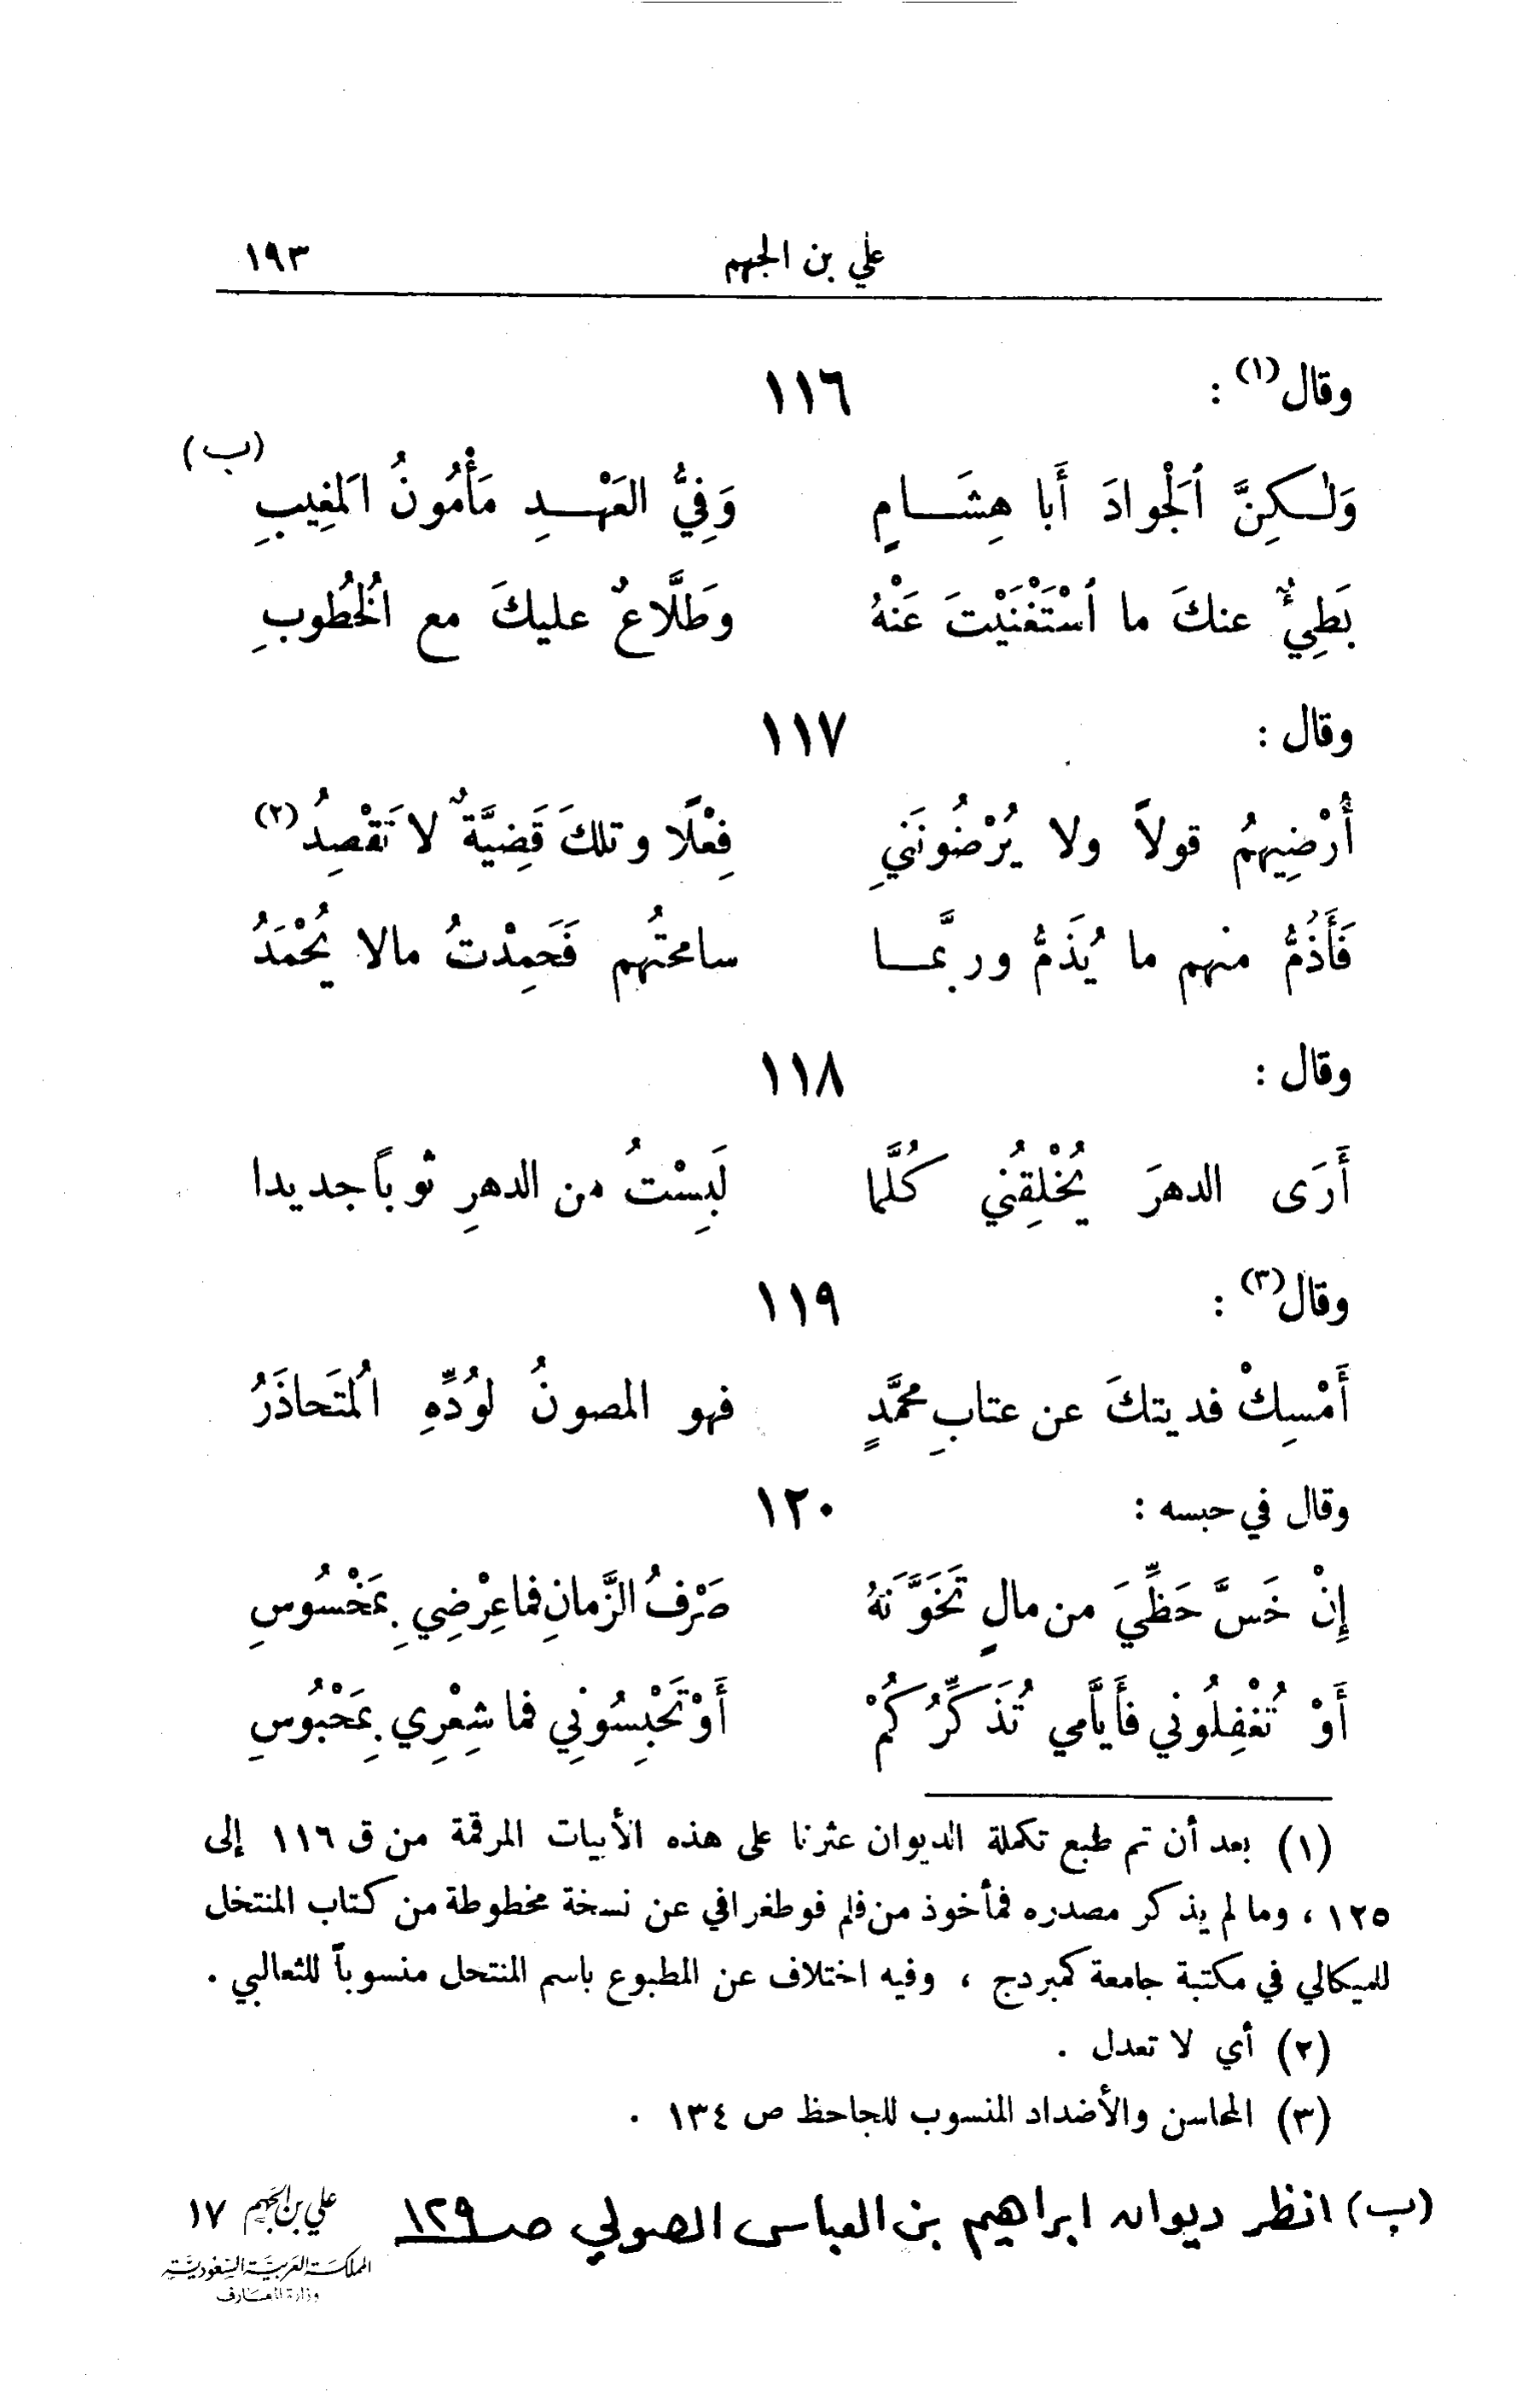 علي بن الجهم ١٩٣
وقال (١) : ١١٦
(ب)
وَلٰكِنَّ ٱلْجوادَ أَبا هِشَامٍ وَفِيُّ العَهْدِ مَأْمُونُ المَغِيبِ
بَطِيءٌ عنكَ ما ٱسْتَغْنَيْتَ عَنْهُ وطَلَّاعٌ عليكَ مع الخُطُوبِ
وقال : ١١٧
أُرْضِيهِمُ قولاً ولا يُرْضُونَنِي فِعْلًا وتلكَ قَضِيَّةٌ لا تَقْصِدُ (٢)
فَأَذُمُّ منهم ما يُذَمُّ وربَّمـا سامحتُهم فَحَمِدْتُ مالا يُحْمَدُ
وقال : ١١٨
أَرَى الدهرَ يُخْلِقُني كُلَّما لَبِسْتُ من الدهرِ ثوباً جديدا
وقال (٣) : ١١٩
أَمْسِكْ فديتكَ عن عتابِ محمَّدٍ فهو المصونُ لوُدِّهِ المُتَحاذَرُ
وقال في حبسه : ١٢٠
إِنْ خَسَّ حَظِّيَ من مالٍ تَخَوَّنَهُ صَرْفُ الزَّمانِ فما عِرْضِي بِمَخْسُوسِ
أَوْ تُغْفِلُوني فأَيَّامي تُذَكِّرُكُمْ أَوْ تَحْبِسُونِي فما شِعْرِي بِمَحْبُوسِ
(١) بعد أن تم طبع تكملة الديوان عثرنا على هذه الأبيات المرقمة من ق ١١٦ إلى
١٢٥ ، وما لم يذكر مصدره فمأخوذ من فلم فوطغرافي عن نسخة مخطوطة من كتاب المنتخل
للميكالي في مكتبة جامعة كمبردج ، وفيه اختلاف عن المطبوع باسم المنتحل منسوباً للثعالبي .
(٢) أي لا تعدل .
(٣) المحاسن والأضداد المنسوب للجاحظ ص ١٣٤ .
(ب) انظر ديوان ابراهيم بن العباس الصولي ص ١٢٩
علي بن الجهم ١٧
المملكة العربية السعودية
وزارة المعارف